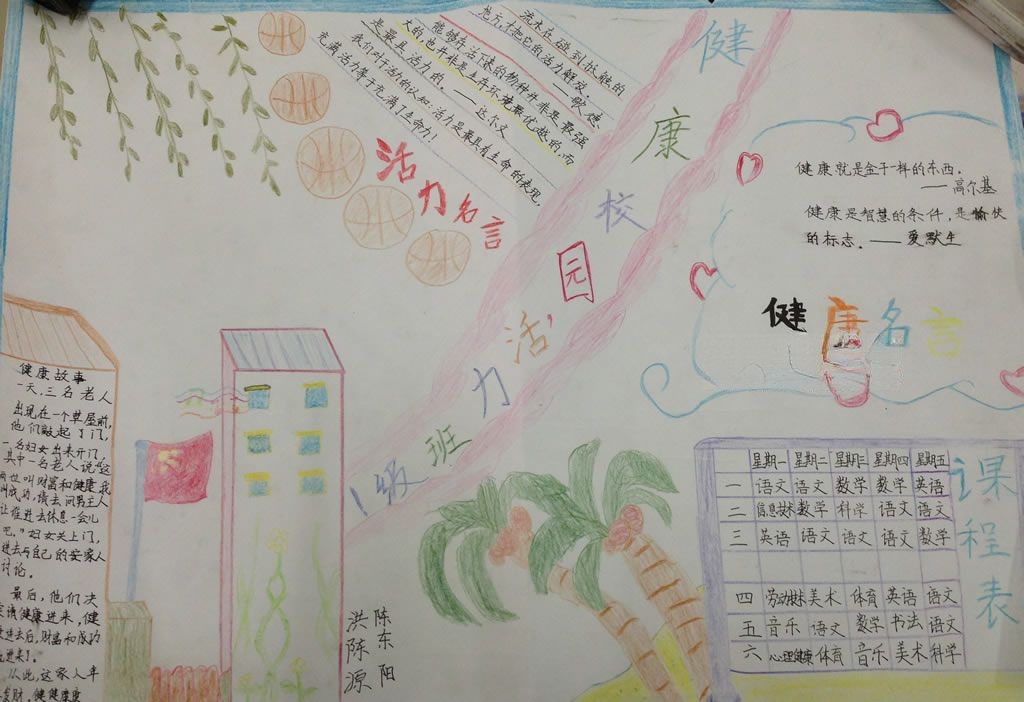 健康校园活力班级
流水在碰到抵触的
地方,才把它的活力解放。——歌德
能够存活下来的物种并非是最强
大的,也并非是生存环境最优越的,而
是最具活力的。——达尔文
我们对于活力的认知:活力是最具有生命的表现,
充满活力等于充满了生命力!
活力名言
健康就是金子一样的东西.
——高尔基
健康是智慧的条件,是愉快
的标志.——爱默生
健康名言
健康故事
一天,三名老人
出现在一个草屋前,
他们敲起了门,
一名妇女出来开门,
其中一名老人说:"这
两位叫财富和健康,我
叫成功,请去问男主人
让谁进去休息一会儿
吧。"妇女关上门,
进去与自己的家人
讨论。
最后,他们决
请健康进来,健
进去后,财富和成功
进来了。
从此,这家人年
发财,健健康康
洪陈源
陈东阳
课程表
星期一 星期二 星期三 星期四 星期五
一 语文 语文 数学 数学 英语
二 信息技术 数学 科学 语文 语文
三 英语 语文 语文 语文 数学
四 劳动技术 美术 体育 英语 语文
五 音乐 语文 数学 书法 语文
六 心理健康 体育 音乐 美术 科学